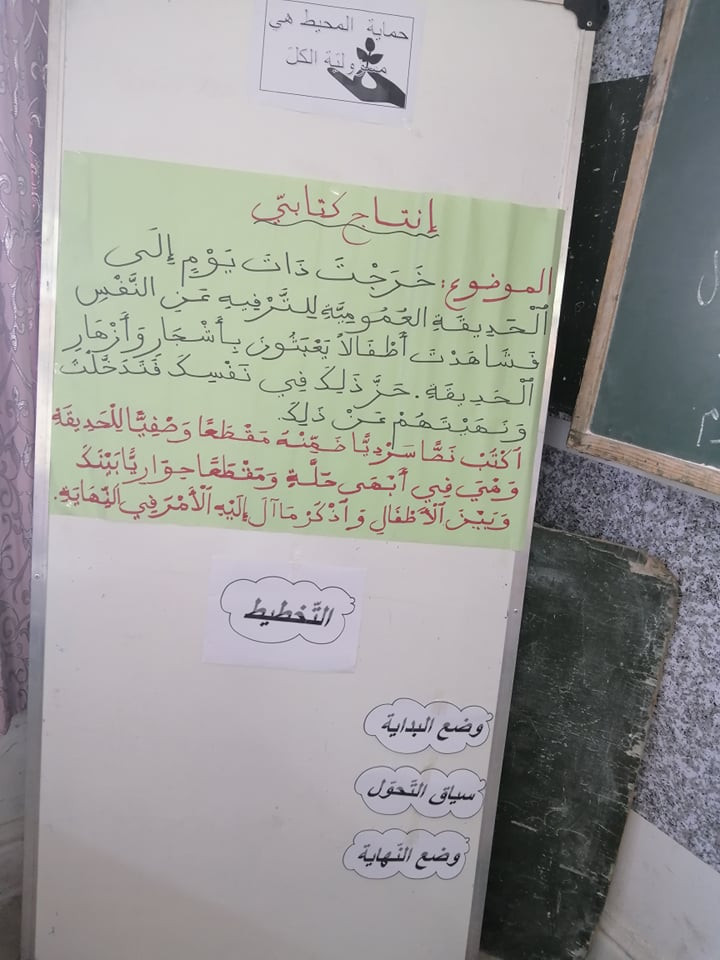 حماية المحيط هي
مسؤولية الكل
إنتاج كتابيّ
الموضوع: خَرَجْتَ ذَاتَ يَوْمٍ إِلَى
ٱلْحَدِيقَةِ العُمُومِيَّةِ لِلتَّرْفِيهِ عَنِ النَّفْسِ
فَشَاهَدْتَ أَطْفَالاً يَعْبَثُونَ بِأَشْجَارِ وَأَزْهَارِ
ٱلْحَدِيقَةِ. حَزَّ ذَلِكَ فِي نَفْسِكَ فَتَدَخَّلْتَ
وَنَهَيْتَهُمْ عَنْ ذَلِكَ.
اُكْتُبْ نَصًّا سَرْدِيًّا ضَمِّنْهُ مَقْطَعًا وَصْفِيًّا لِلْحَدِيقَةِ
وَهْيَ فِي أَبْهَى حُلَّةٍ وَمَقْطَعًا حِوَارِيًّا بَيْنَكَ
وَبَيْنَ ٱلْأَطْفَالِ وَٱذْكُرْ مَا آلَ إِلَيْهِ ٱلْأَمْرُ فِي النِّهَايَةِ.
التّخطيط
وضع البداية
سياق التّحوّل
وضع النّهاية